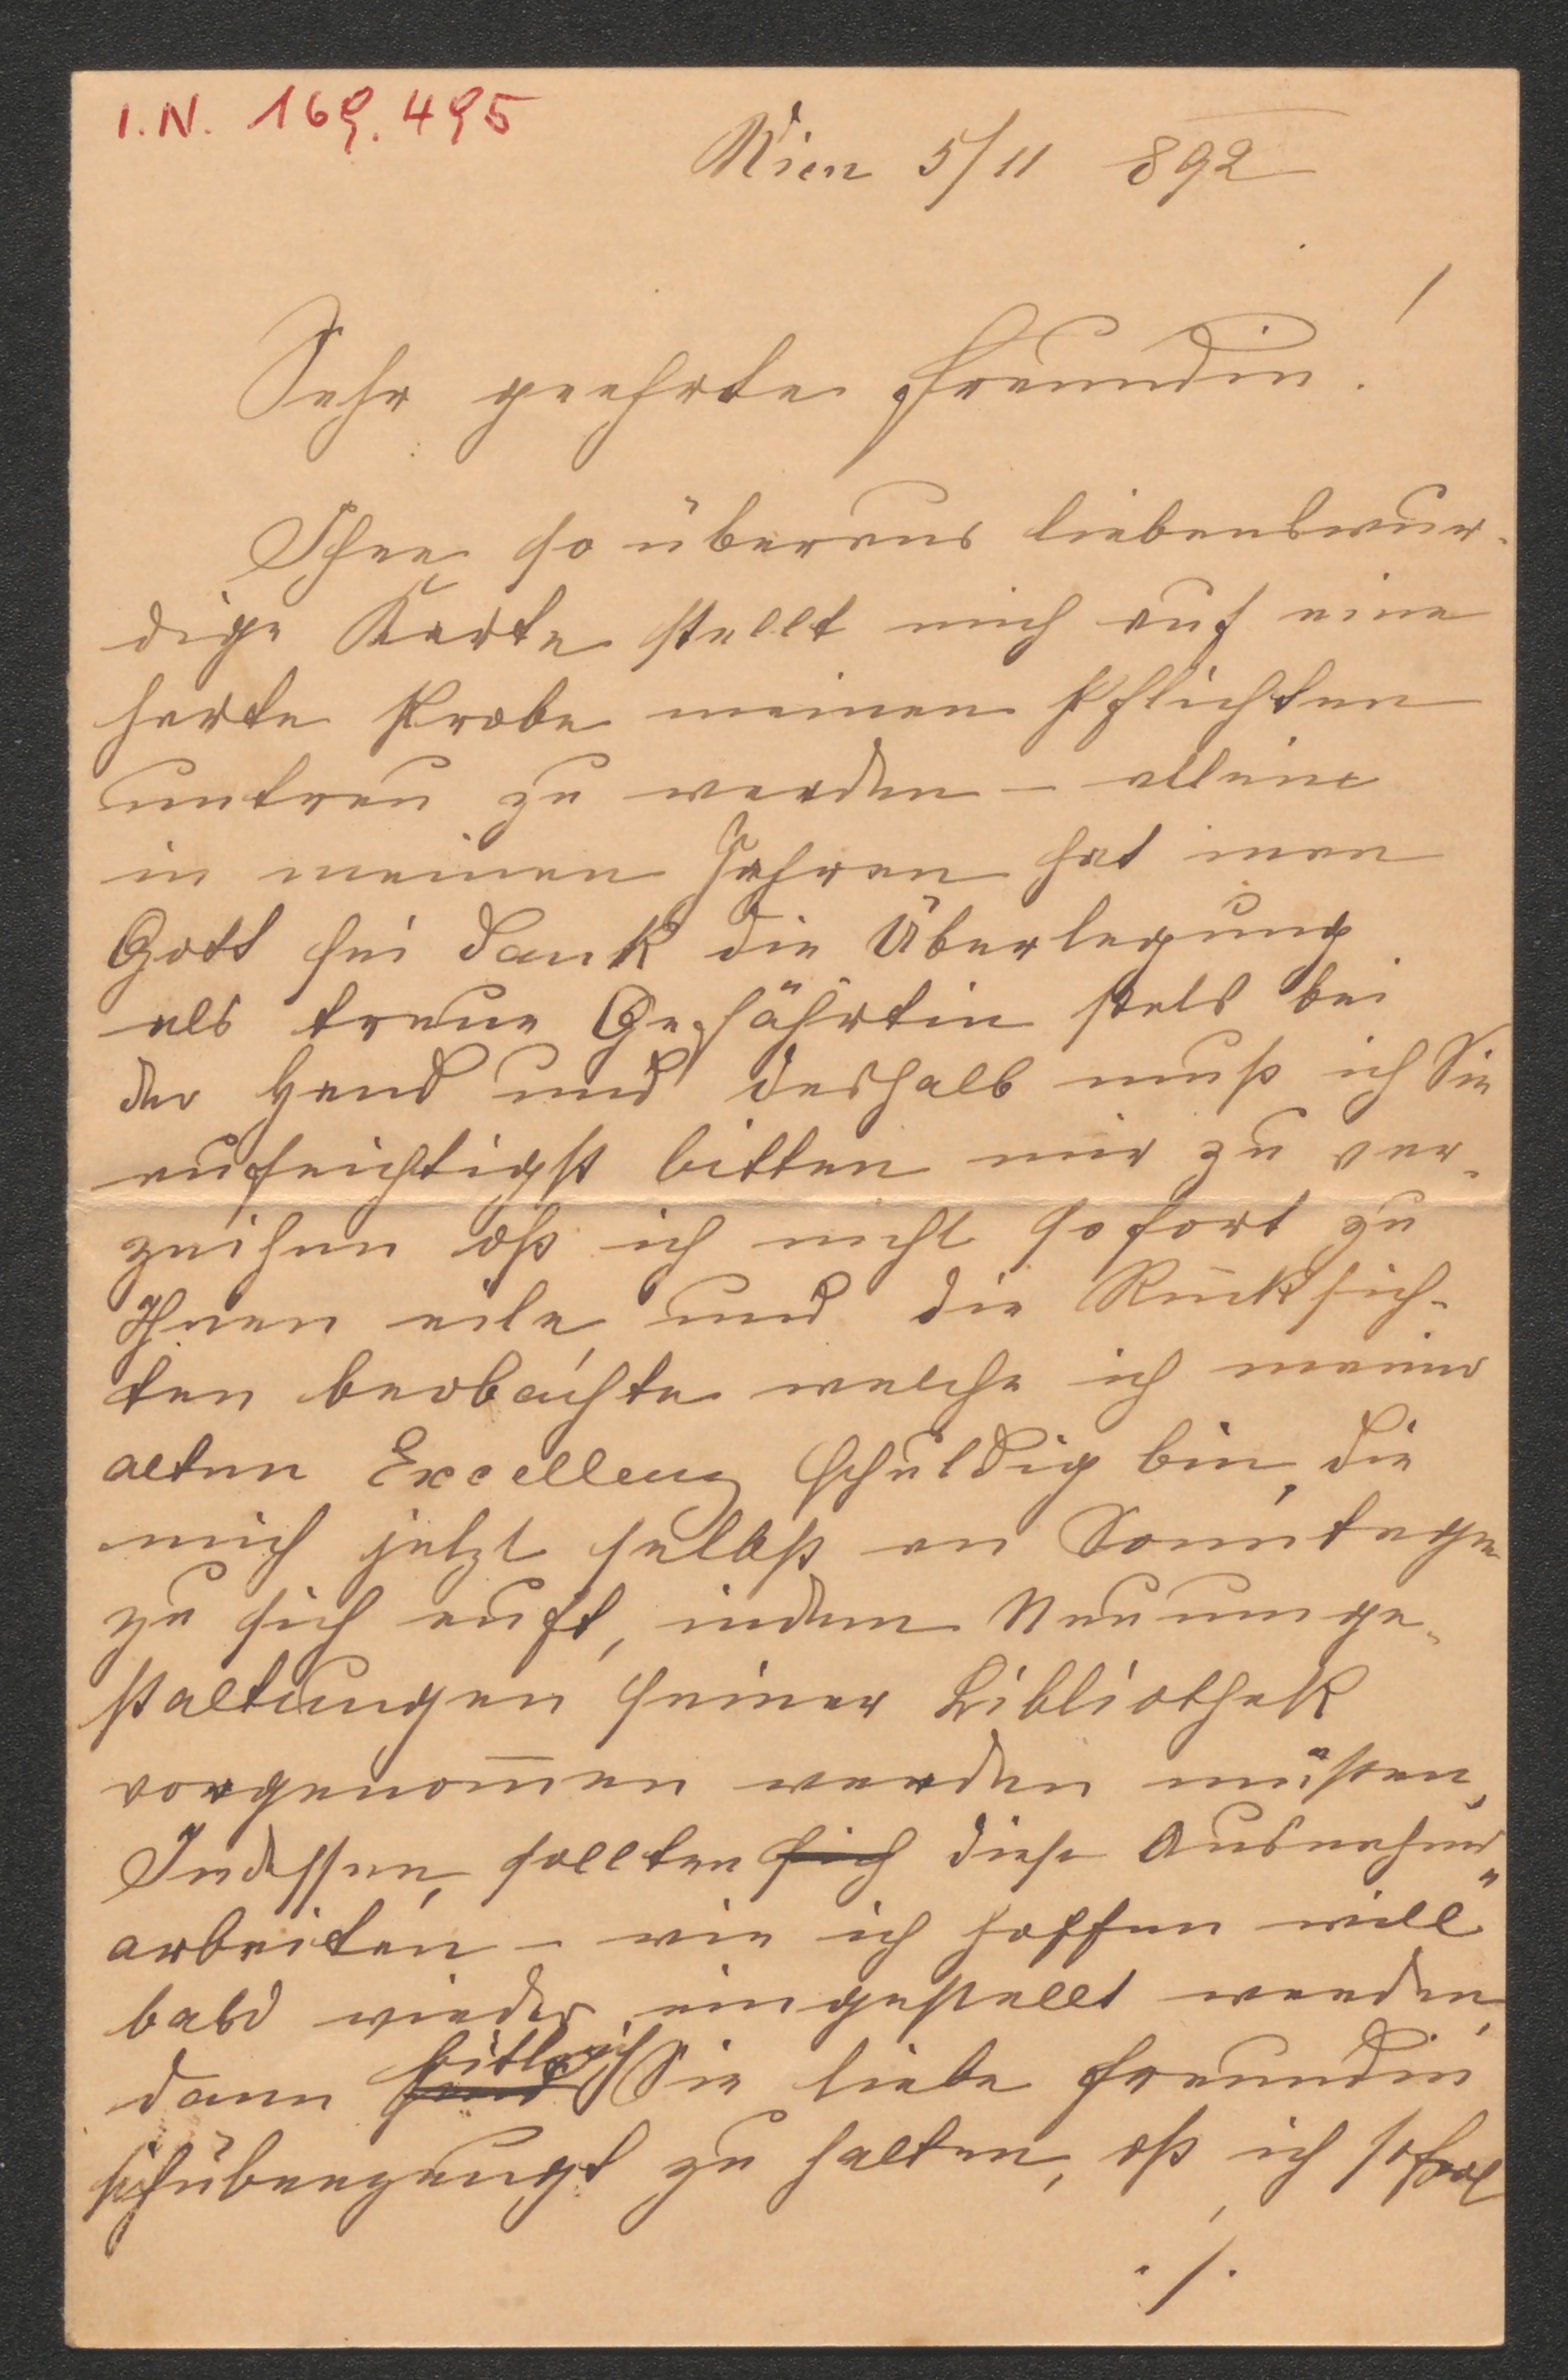 I.N. 169.495
Wien 5/11 892
Sehr geehrte Freundin!
Ihre so überaus liebenswür-
dige Karte stellt mich auf eine
harte Probe meinen Pflichten
untreu zu werden – alleine
in meinen Jahren hat man
Gott sei Dank die Überlegung
als treue Gefährtin stets bei
der Hand und deshalb muß ich Sie
aufrichtigst bitten mir zu ver-
zeihen dß ich nicht sofort zu
Ihnen eile, und die Rücksich-
ten beobachte welche ich meiner
alten Excellenz schuldig bin, die
mich jetzt selbst an Sonntage
zu sich ruft, indem Neuumge-
staltungen seiner Bibliothek
vorgenom̄en werden müssen,
Indessen, sollten sich diese Ausnahms
arbeiten – wie ich hoffen will"
bald wieder eingestellt werden,
dann bitte ich Sie liebe Freundin
sich überzeugt zu halten, dß ich sofort
./.